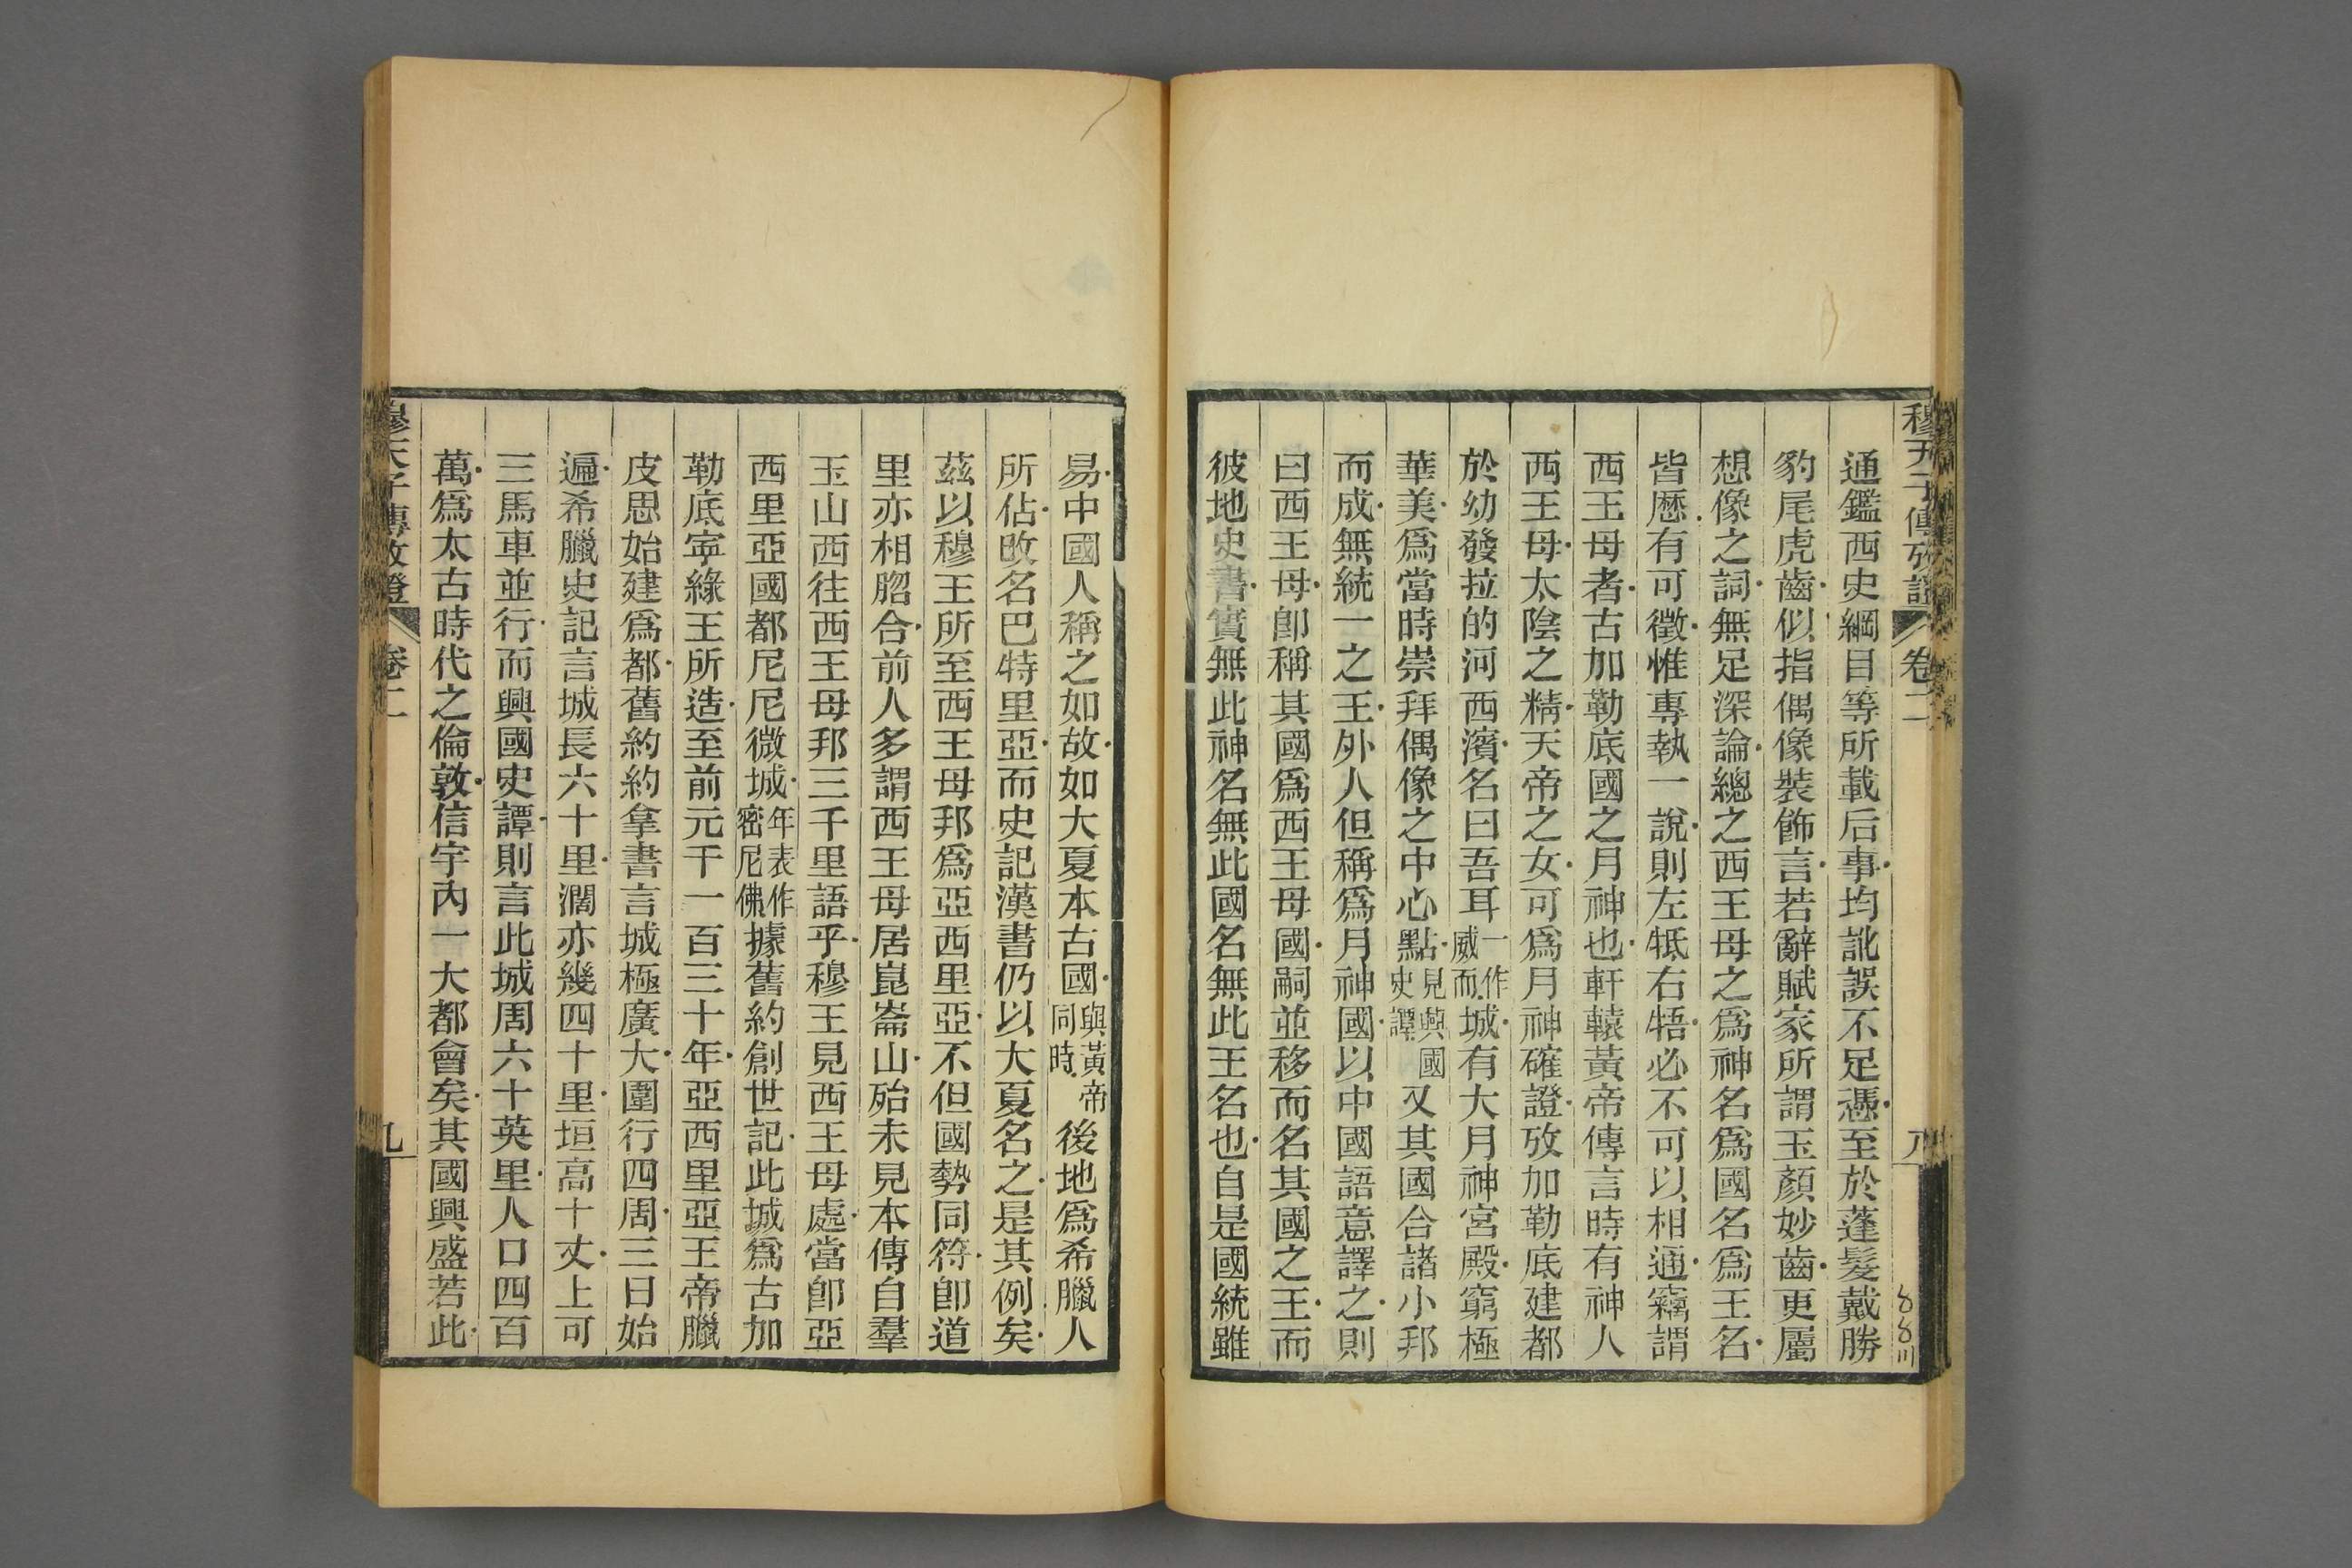 穆天子傳攷證 卷二 八
通鑑西史綱目等所載后事均訛誤不足憑至於蓬髮戴勝
豹尾虎齒似指偶像裝飾言若辭賦家所謂玉顏妙齒更屬
想像之詞無足深論總之西王母之爲神名爲國名爲王名
皆歷有可徵惟專執一說則左牴右牾必不可以相通竊謂
西王母者古加勒底國之月神也軒轅黃帝傳言時有神人
西王母太陰之精天帝之女可爲月神確證攷加勒底建都
於幼發拉的河西濱名曰吾耳一作威而城有大月神宮殿窮極
華美爲當時崇拜偶像之中心點見興國史譚又其國合諸小邦
而成無統一之王外人但稱爲月神國以中國語意譯之則
曰西王母卽稱其國爲西王母國嗣並移而名其國之王而
彼地史書實無此神名無此國名無此王名也自是國統雖
易中國人稱之如故如大夏本古國與黃帝同時後地爲希臘人
所佔改名巴特里亞而史記漢書仍以大夏名之是其例矣
茲以穆王所至西王母邦爲亞西里亞不但國勢同符卽道
里亦相脗合前人多謂西王母居崑崙山殆未見本傳自羣
玉山西往西王母邦三千里語乎穆王見西王母處當卽亞
西里亞國都尼尼微城年表作密尼佛據舊約創世記此城爲古加
勒底寧綠王所造至前元千一百三十年亞西里亞王帝臘
皮思始建爲都舊約約拿書言城極廣大圍行四周三日始
遍希臘史記言城長六十里濶亦幾四十里垣高十丈上可
三馬車並行而興國史譚則言此城周六十英里人口四百
萬爲太古時代之倫敦信宇內一大都會矣其國興盛若此
穆天子傳攷證 卷二 九